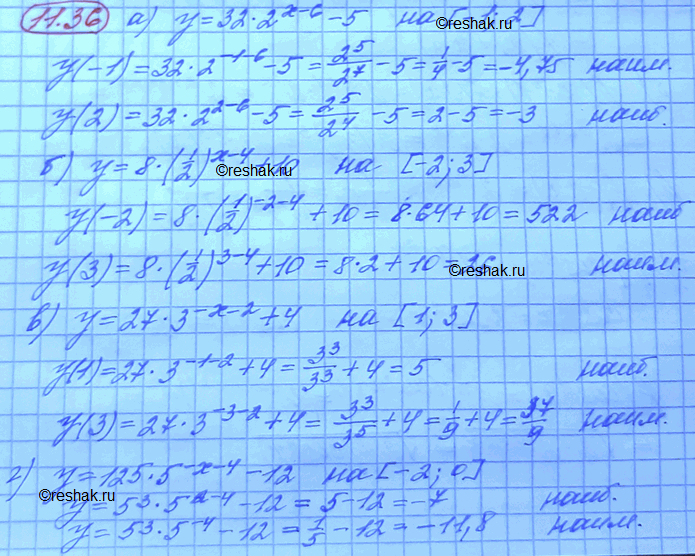 11.36 а) y = 32·2^(x-6) - 5 на [-1; 2]
y(-1) = 32·2^(-1-6) - 5 = 2^5/2^7 - 5 = 1/4 - 5 = -4,75 наим.
y(2) = 32·2^(2-6) - 5 = 2^5/2^4 - 5 = 2 - 5 = -3 наиб.
б) y = 8·(1/2)^(x-4) + 10 на [-2; 3]
y(-2) = 8·(1/2)^(-2-4) + 10 = 8·64 + 10 = 522 наиб
y(3) = 8·(1/2)^(3-4) + 10 = 8·2 + 10 = 26 наим.
в) y = 27·3^(-x-2) + 4 на [1; 3]
y(1) = 27·3^(-1-2) + 4 = 3^3/3^3 + 4 = 5 наиб.
y(3) = 27·3^(-3-2) + 4 = 3^3/3^5 + 4 = 1/9 + 4 = 37/9 наим.
г) y = 125·5^(-x-4) - 12 на [-2; 0]
y = 5^3·5^(2-4) - 12 = 5 - 12 = -7 наиб.
y = 5^3·5^(-4) - 12 = 1/5 - 12 = -11,8 наим.
©reshak.ru
©reshak.ru
©reshak.ru
©reshak.ru